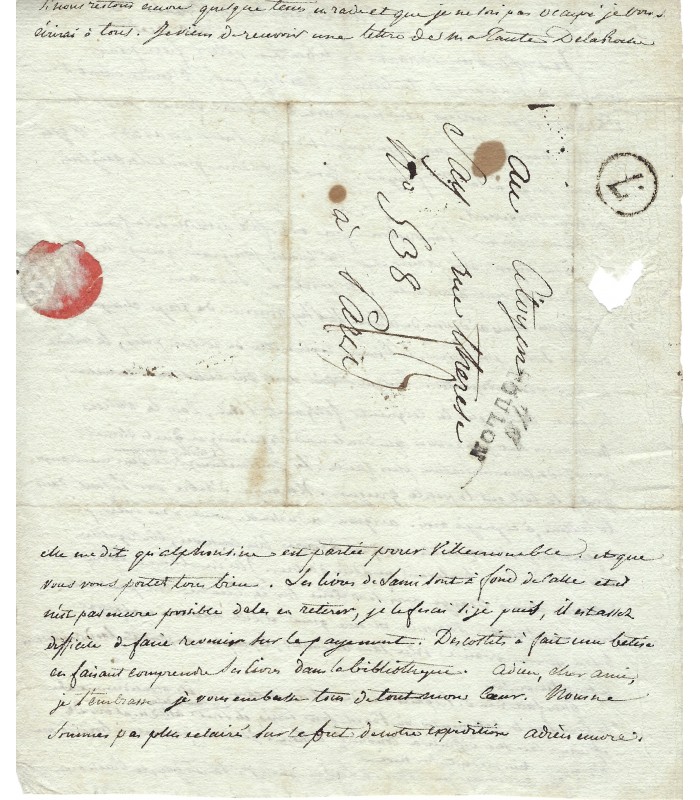 si nous restons encore quelque tems en rade et que je ne sois pas occupé je vous
écrirai à tous. Je viens de recevoir une lettre de ma Tante Delaroche
au Citoyen
Say rue therese
N° 538
à Paris
TOULON
L
elle me dit qu'alphonsine est partie pour Villemomble. et que
vous vous portez tous bien. Les livres de Sami sont à fond de calle et il
n'est pas encore possible de les en retirer, je le ferai si je puis, il est assez
difficile de faire revenir sur le payement. Descottils à fait une betise
en faisant comprendre ses livres dans la bibliotheque. Adieu, cher ami,
je t'embrasse je vous embrasse tous de tout mon Cœur. Nous ne
sommes pas plus eclairés sur le but de notre expedition adieu encore.